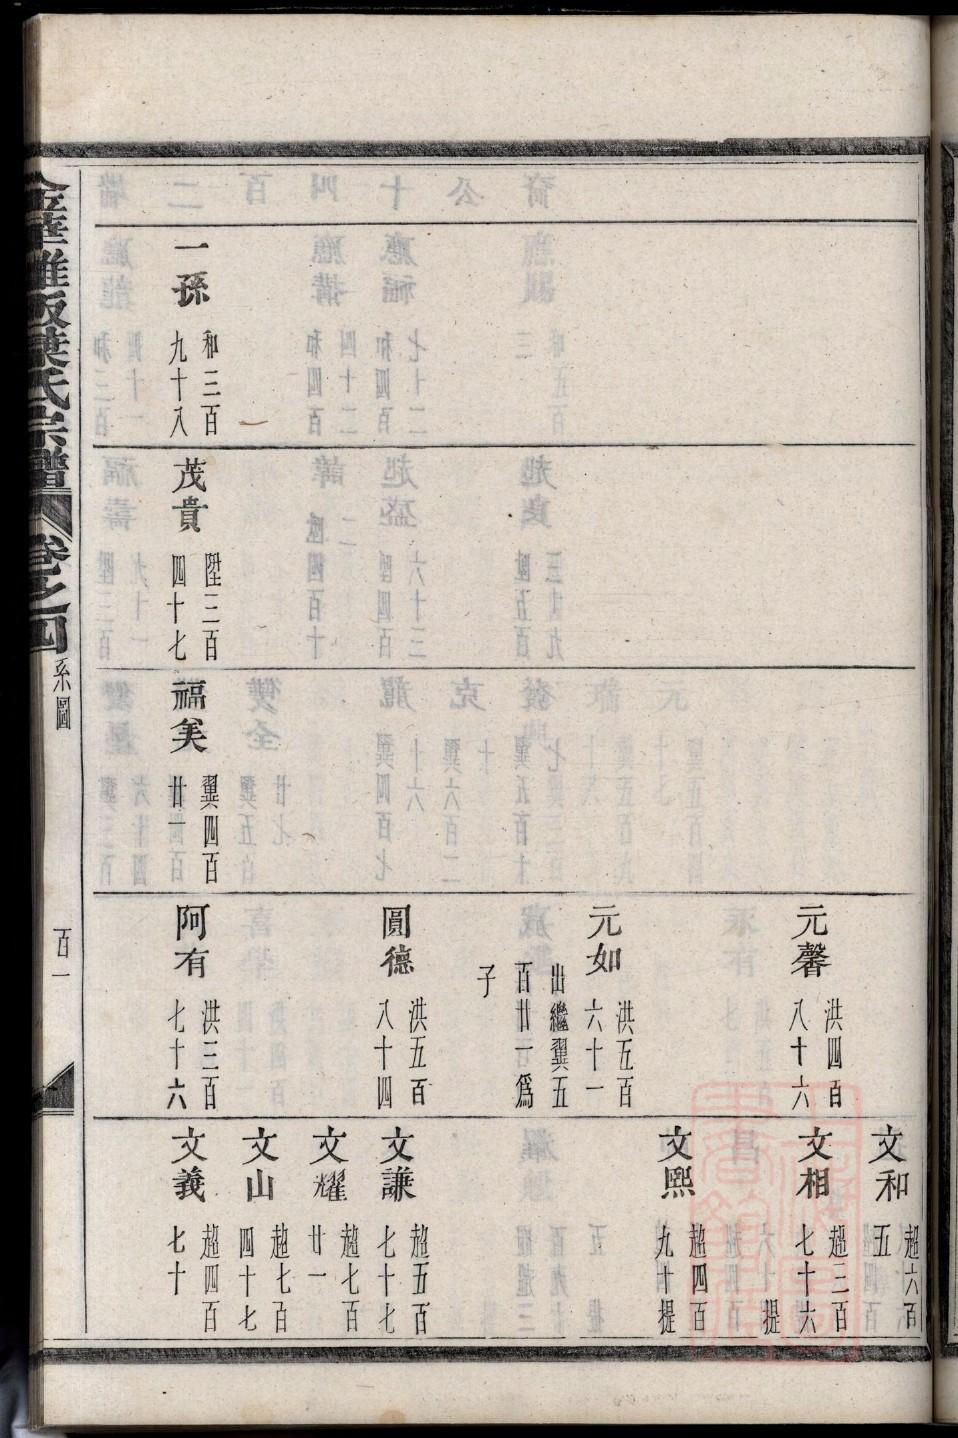 一孫
和三百
九十八
茂貴
陞三百
四十七
福美
翼四百
廿一
元馨
洪四百
八十六
元如
洪五百
六十一
出繼翼五
百廿一爲
子
圓德
洪五百
八十四
阿有
洪三百
七十六
文和
超六百
五
文相
超三百
七十六
提
文熙
超四百
九十提
文謙
超五百
七十七
文耀
超七百
廿一
文山
超七百
四十七
文義
超四百
七十
葉氏宗譜
卷之四
系圖
百一